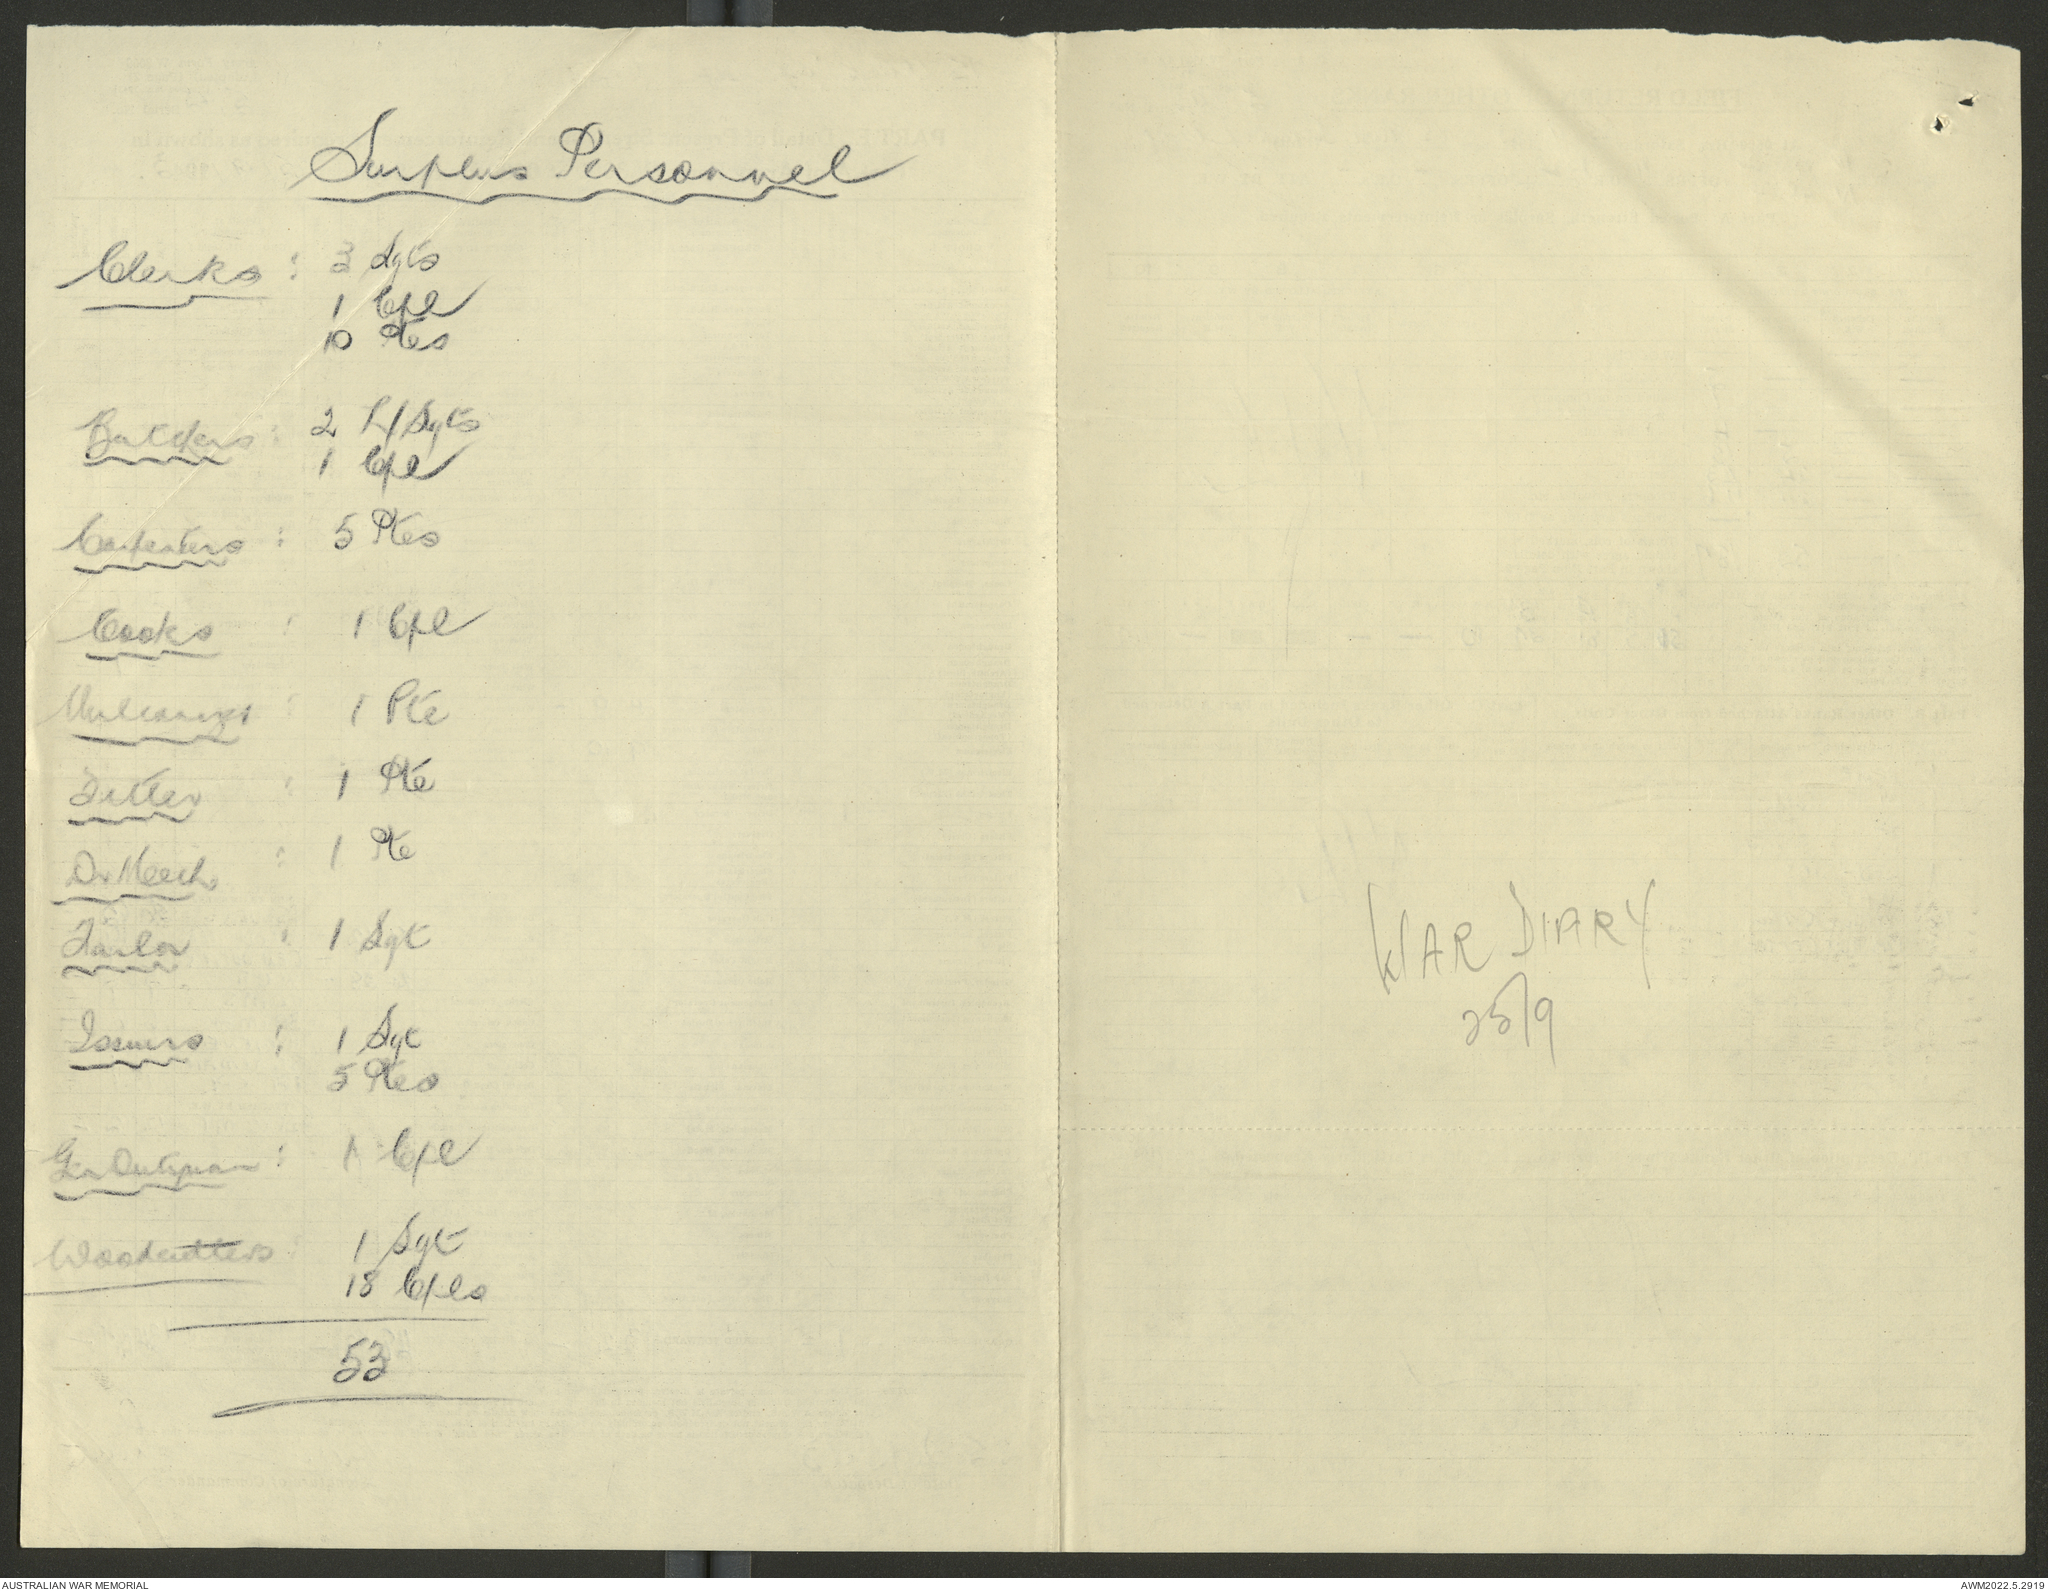 Surplus Personnel
Clerks : 3 Sgts
1 Cpl
10 Ptes
Butchers : 2 L/Sgts
1 Cpl
Carpenters : 5 Ptes
Cooks : 1 Cpl
Vulcaniser : 1 Pte
Fitter : 1 Pte
Dvr Mech : 1 Pte
Tailor : 1 Sgt
Issuers : 1 Sgt
5 Ptes
Gen Dutyman : 1 Cpl
Woodcutters : 1 Sgt
18 Cpls
53
WAR DIARY
25/9
AUSTRALIAN WAR MEMORIAL
AWM2022.5.2919